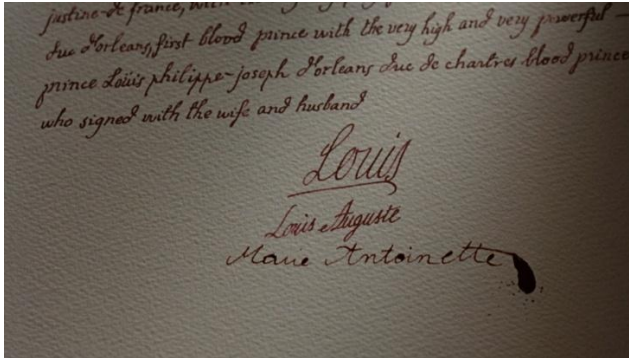 justine de france, with
duc d'orleans, first blood prince with the very high and very powerful -
prince Loüis philippe-joseph d'orleans duc de chartres blood prince
who signed with the wife and husband
Louis
Louis Auguste
Marie Antoinette